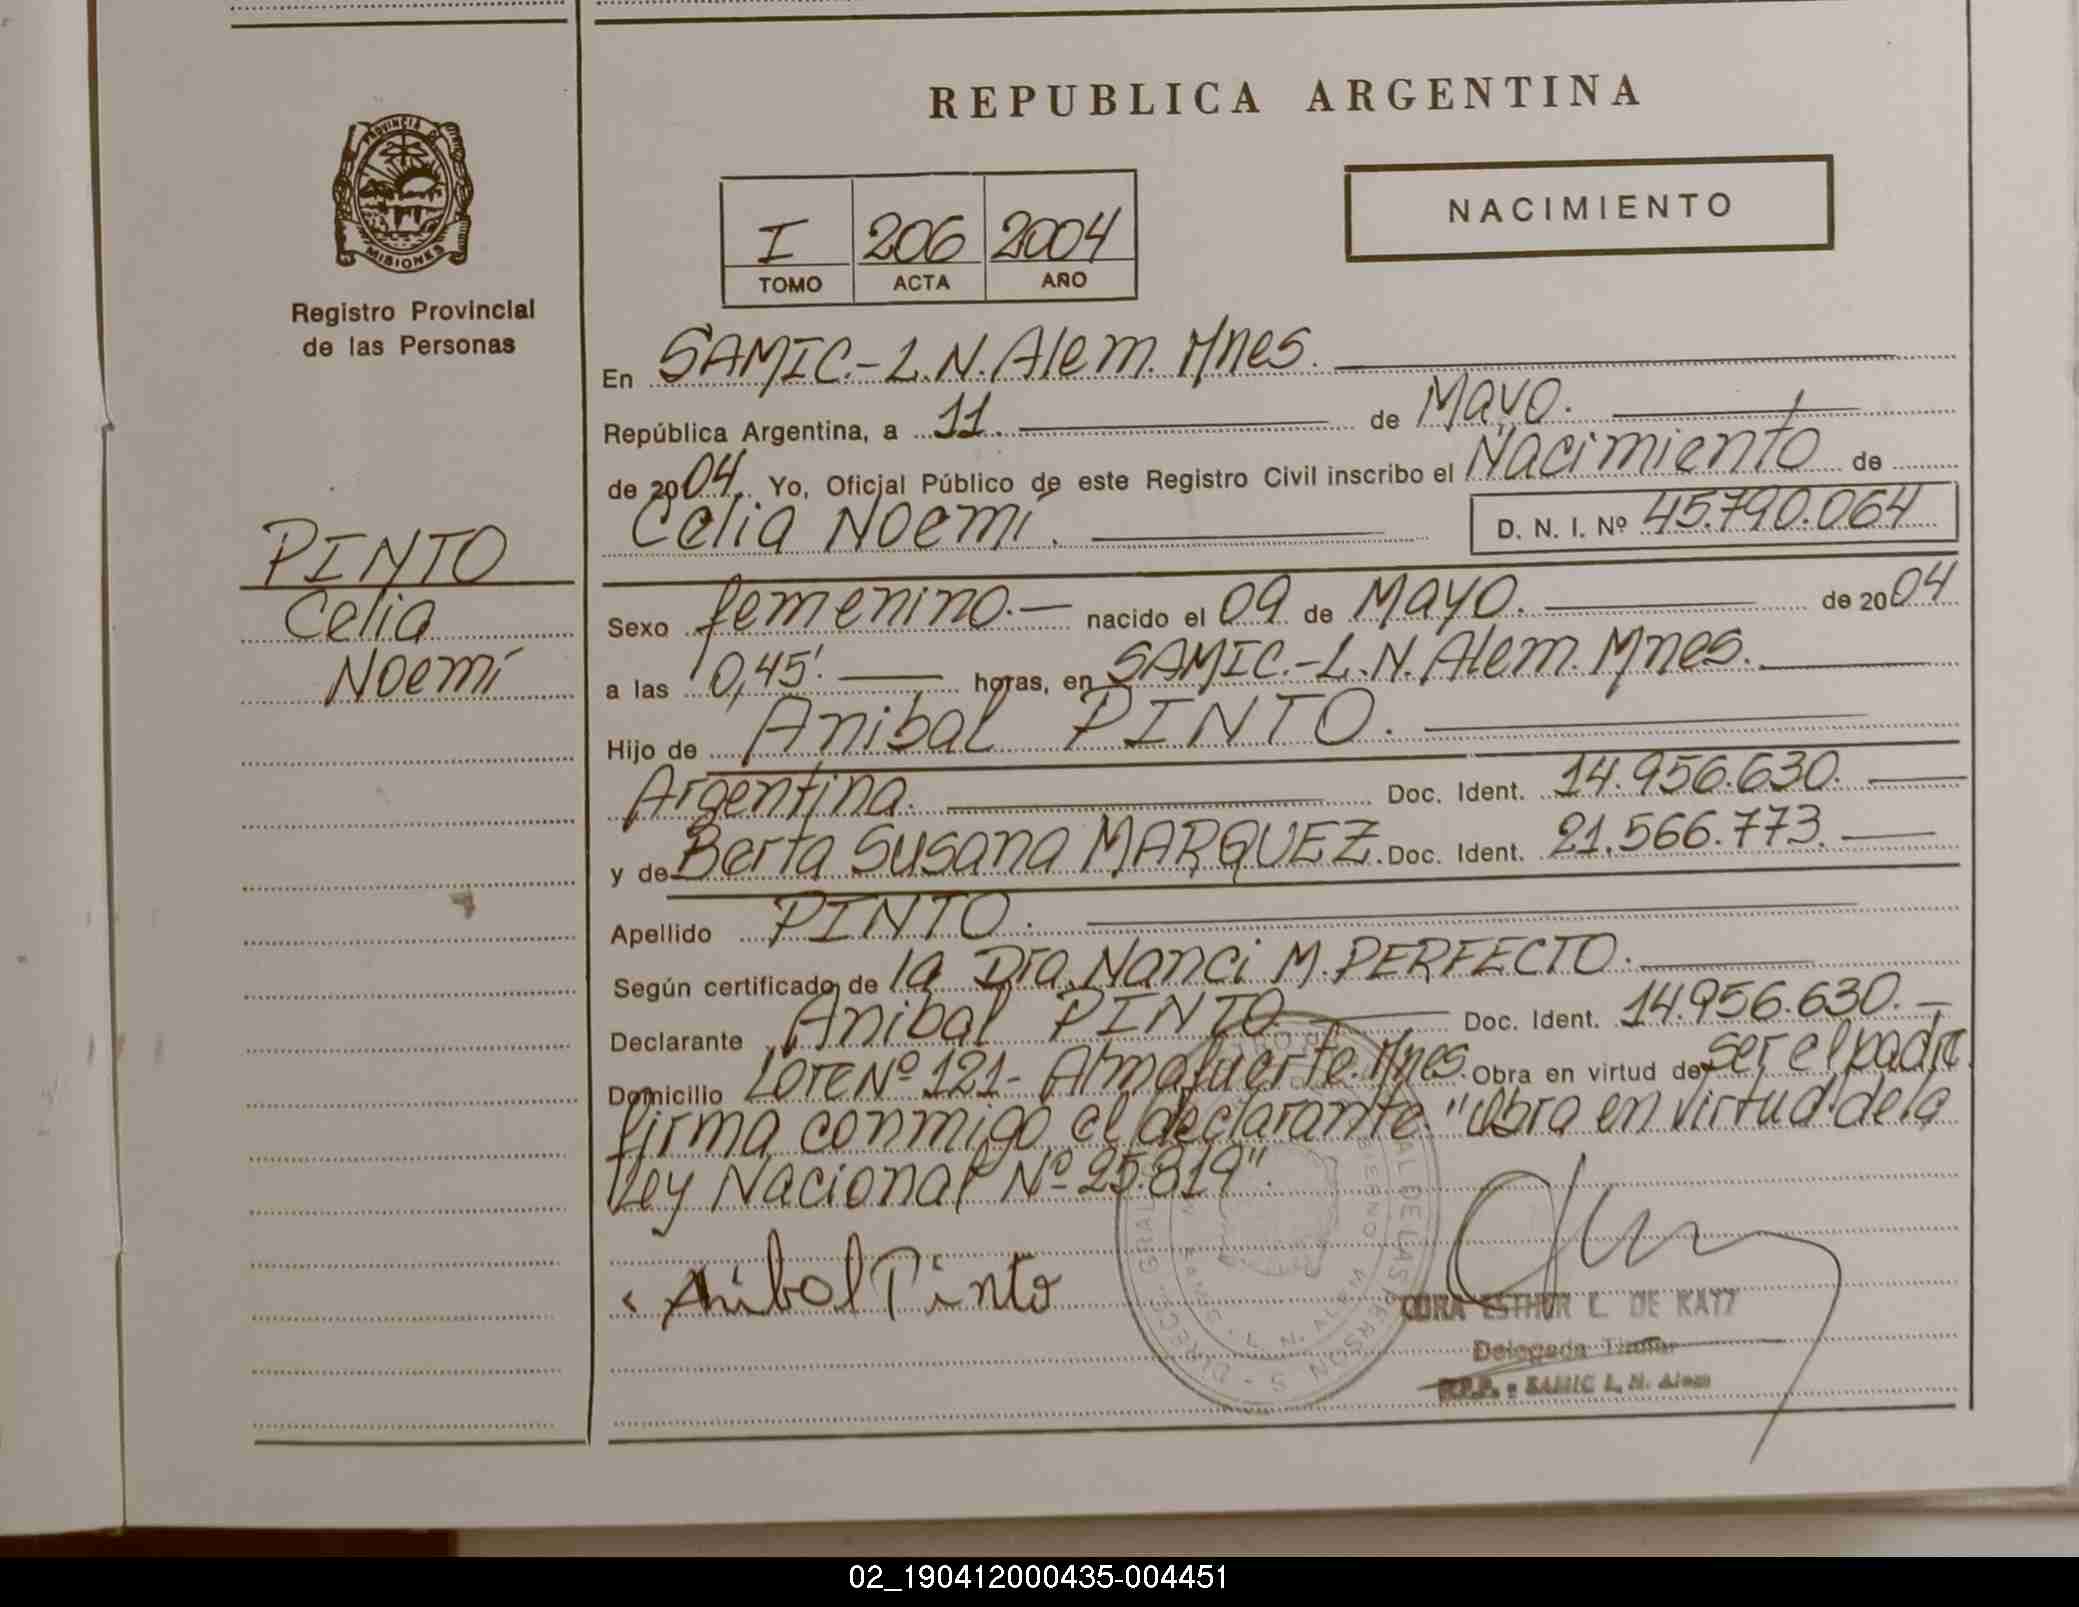 REPUBLICA ARGENTINA
PROVINCIA DE
MISIONES
Registro Provincial
de las Personas
NACIMIENTO
I 206 2004
TOMO ACTA AÑO
En SAMIC.-L.N.Alem. Mnes.
República Argentina, a 11. de Mayo.
de 2004. Yo, Oficial Público de este Registro Civil inscribo el Nacimiento de
Celia Noemí. D. N. I. Nº 45.790.064
PINTO
Celia
Noemí
Sexo femenino.- nacido el 09 de Mayo. de 2004
a las 0,45'. horas, en SAMIC.-L.N.Alem. Mnes.
Hijo de Anibal PINTO.
Argentina. Doc. Ident. 14.956.630.
y de Berta Susana MARQUEZ. Doc. Ident. 21.566.773.
Apellido PINTO.
Según certificado de la Dra. Nanci M. PERFECTO.
Declarante Anibal PINTO Doc. Ident. 14.956.630.-
Domicilio LOTE Nº 121- Almafuerte. Mnes. Obra en virtud de ser el padre
firma conmigo el declarante. "Obra en virtud de la
Ley Nacional Nº 25.819".
Anibal Pinto
ESTHER L. DE KATZ
Delegada Titular
R.P.P. - SAMIC L. N. Alem
02_190412000435-004451